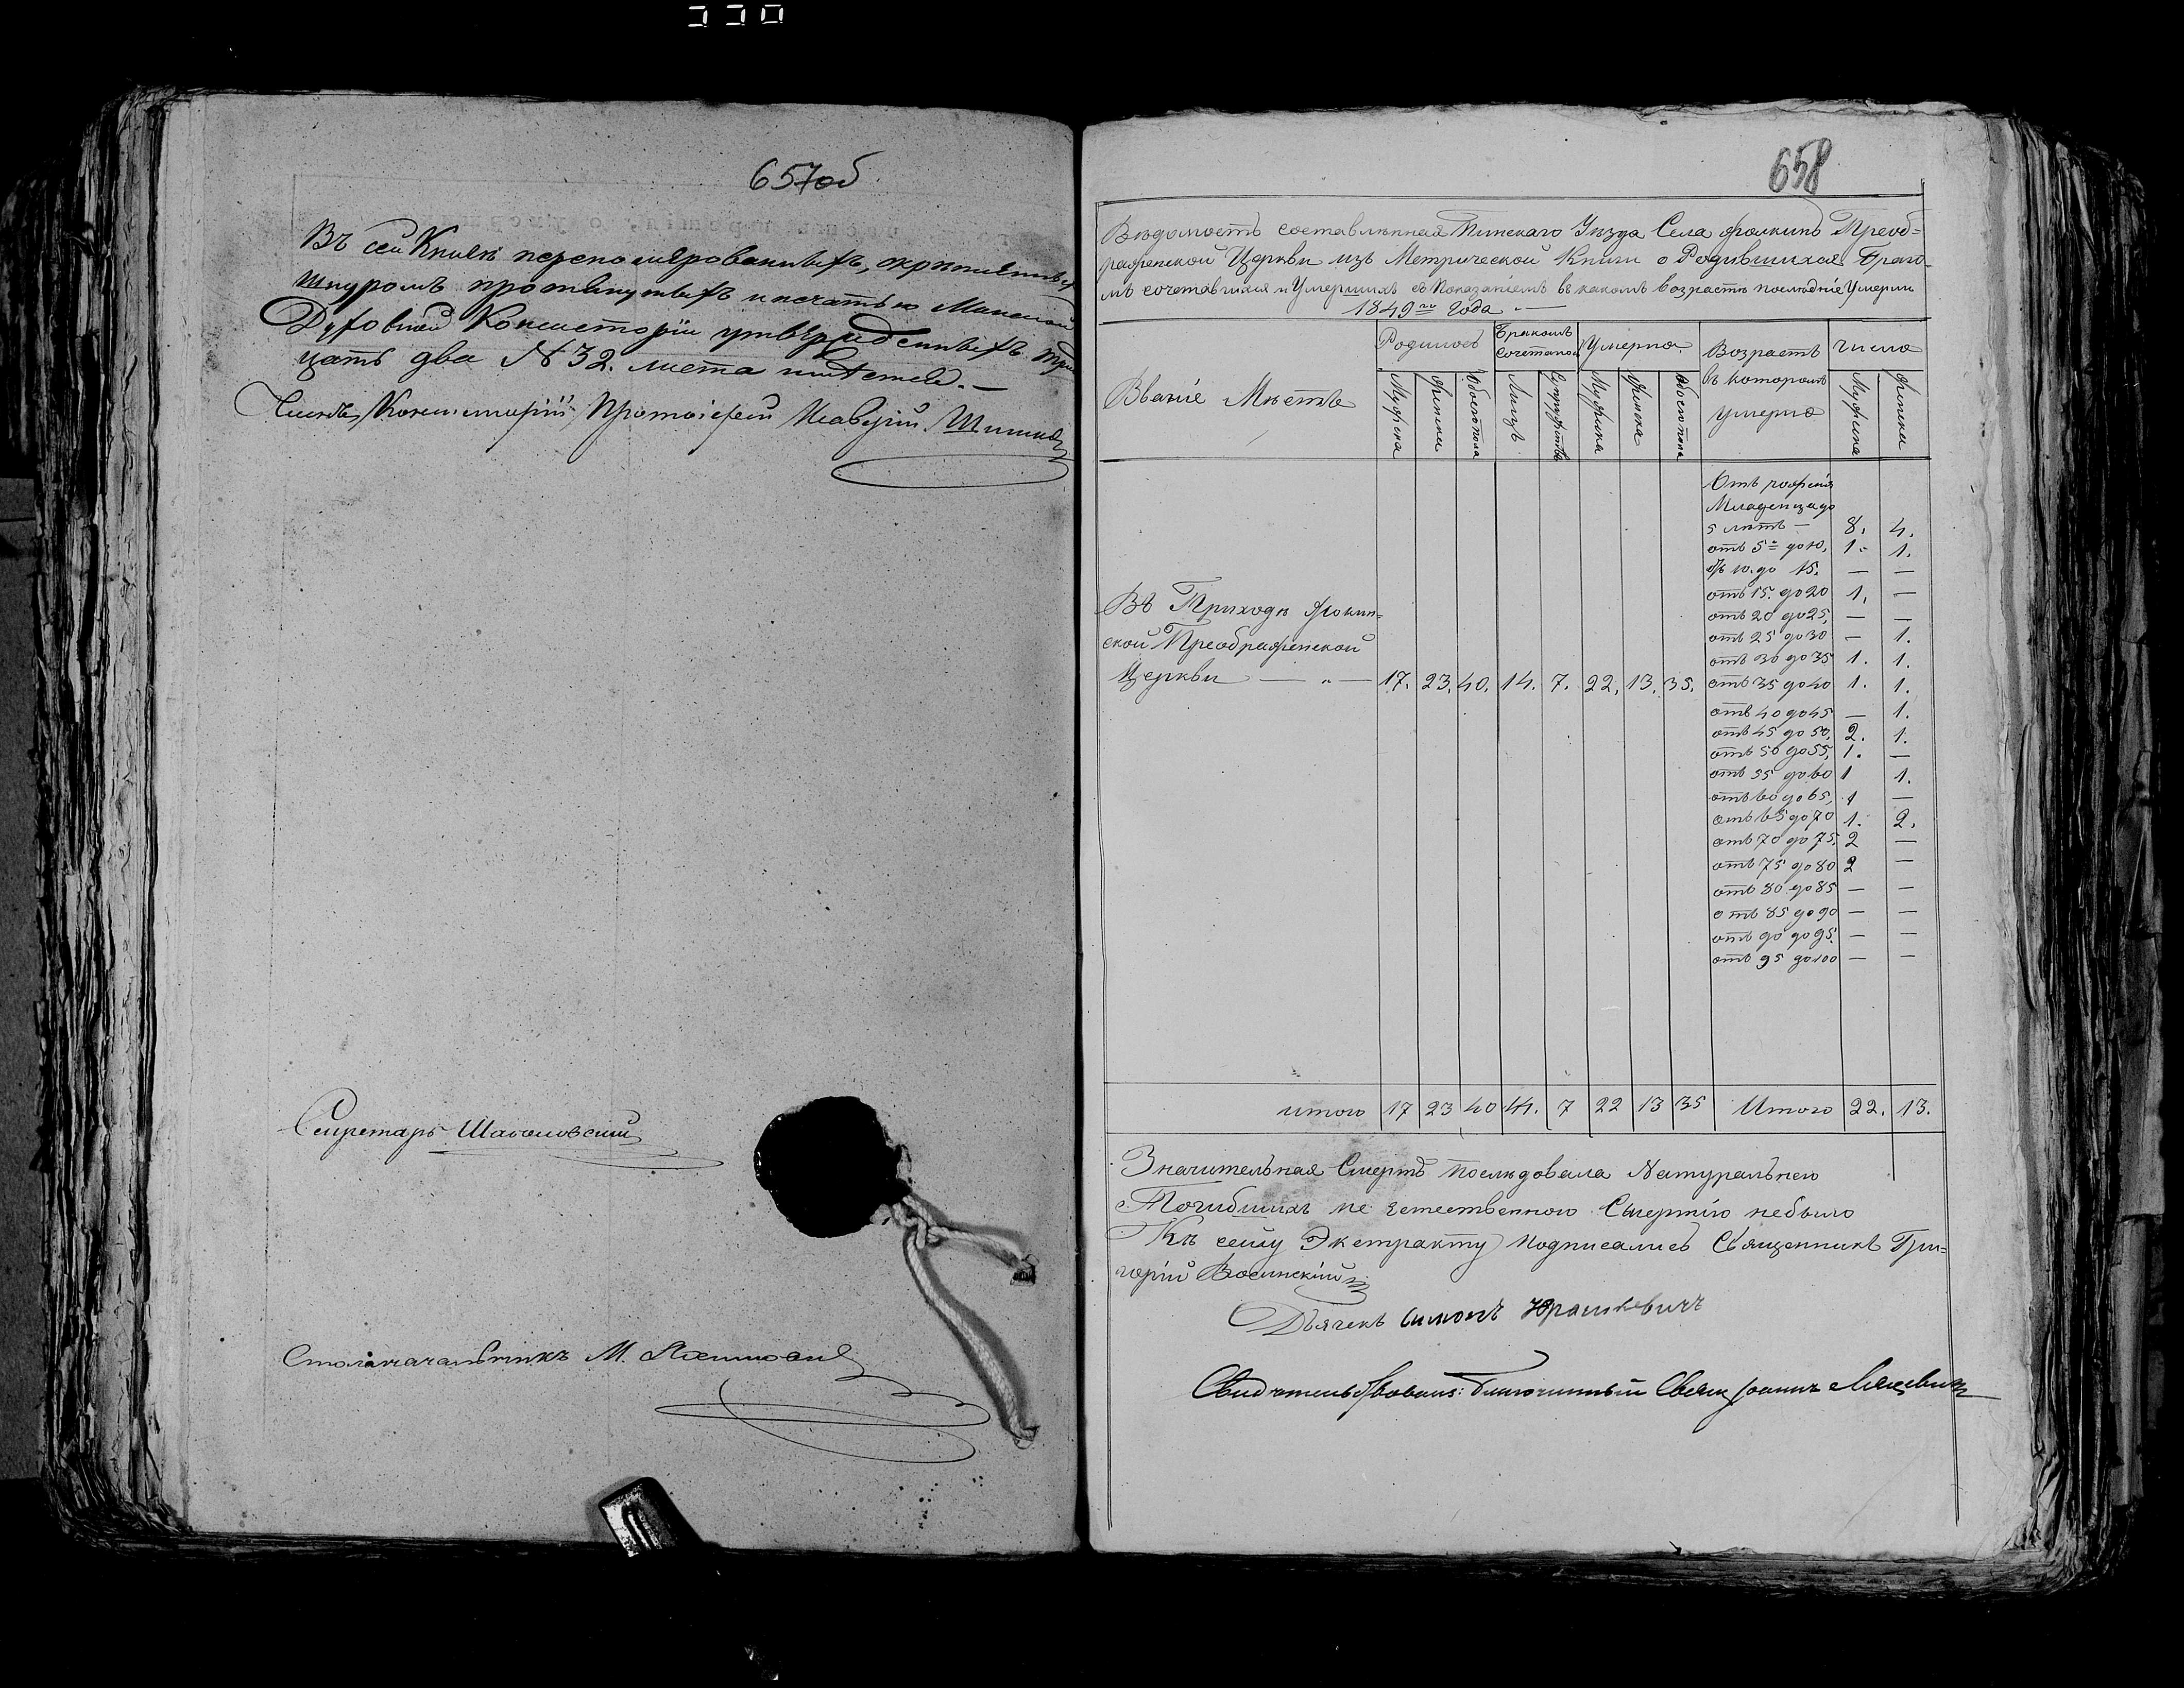 657об
Въ сей Книгѣ перенумерованныхъ, скрѣпленныхъ
шнуромъ протянутыхъ и печатью Минской
Духовной Консисторіи утвержденныхъ три
цать два № 32. листа имѣется. —
Членъ Консисторіи Протоіерей
Секретарь
Столоначальникъ М.
658
Вѣдомость составленная Пинскаго Уѣзда Села Жолкинъ Преоб-
раженской Церкви изъ Метрической Книги о Родившихся Брако-
мъ сочетавшихся и Умершихъ съ Показаніемъ въ какомъ возрастѣ послѣдніе Умерли
1849го Года. —
Званіе Мѣстъ
Родилось
Бракомъ
сочеталось
Умерло
Возрастъ
въ которомъ
умерло
Число
Мужеска
Женска
Обоего пола
Лицъ
Супружествъ
Мужеска
Женска
Обоего пола
Мужеска
Женска
Въ Приходѣ Жолкин-
ской Преображенской
Церкви — „ — 17. 23. 40. 14. 7. 22. 13. 35.
Отъ рожденія
Младенца до
5 лѣтъ — 8. 4.
отъ 5 до 10, 1. 1.
отъ 10. до 15. — —
отъ 15. до 20 1. —
отъ 20 до 25, — —
отъ 25 до 30 — 1.
отъ 30 до 35 1. 1.
отъ 35 до 40 1. 1.
отъ 40 до 45 — 1.
отъ 45 до 50, 2. 1.
отъ 50 до 55, 1. —
отъ 55 до 60 1 1.
отъ 60 до 65, 1 —
отъ 65 до 70 1. 2.
отъ 70 до 75, 2 —
отъ 75 до 80 2 —
отъ 80 до 85 — —
отъ 85 до 90 — —
отъ 90 до 95. — —
отъ 95 до 100 — —
итого 17 23 40 14. 7 22 13 35 Итого 22. 13.
Значительная Смерть послѣдовала Натуральною
Погибшихъ не естественною Смертію небыло
Къ сему Экстракту подписались Священникъ Гри-
горій
Дьячекъ Симонъ Юрашкевичъ
Свидѣтельствовалъ: Благочинный Свящ Іоаннъ